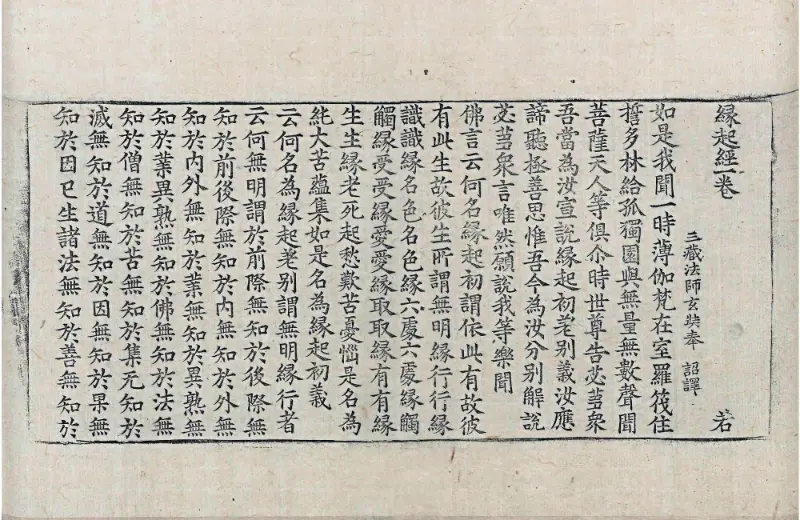 緣起經一卷 若
三藏法師玄奘奉 詔譯
如是我聞一時薄伽梵在室羅筏住
誓多林給孤獨園與無量無數聲聞
菩薩天人等俱尒時世尊告苾芻衆
吾當為汝宣說緣起初差别義汝應
諦聽極善思惟吾今為汝分别解說
苾芻衆言唯然願說我等樂聞
佛言云何名緣起初謂依此有故彼
有此生故彼生所謂無明緣行行緣
識識緣名色名色緣六處六處緣觸
觸緣受受緣愛愛緣取取緣有有緣
生生緣老死起愁歎苦憂惱是名為
純大苦蘊集如是名為緣起初義
云何名為緣起差别謂無明緣行者
云何無明謂於前際無知於後際無
知於前後際無知於内無知於外無
知於内外無知於業無知於異熟無
知於業異熟無知於佛無知於法無
知於僧無知於苦無知於集无知於
滅無知於道無知於因無知於果無
知於因已生諸法無知於善無知於